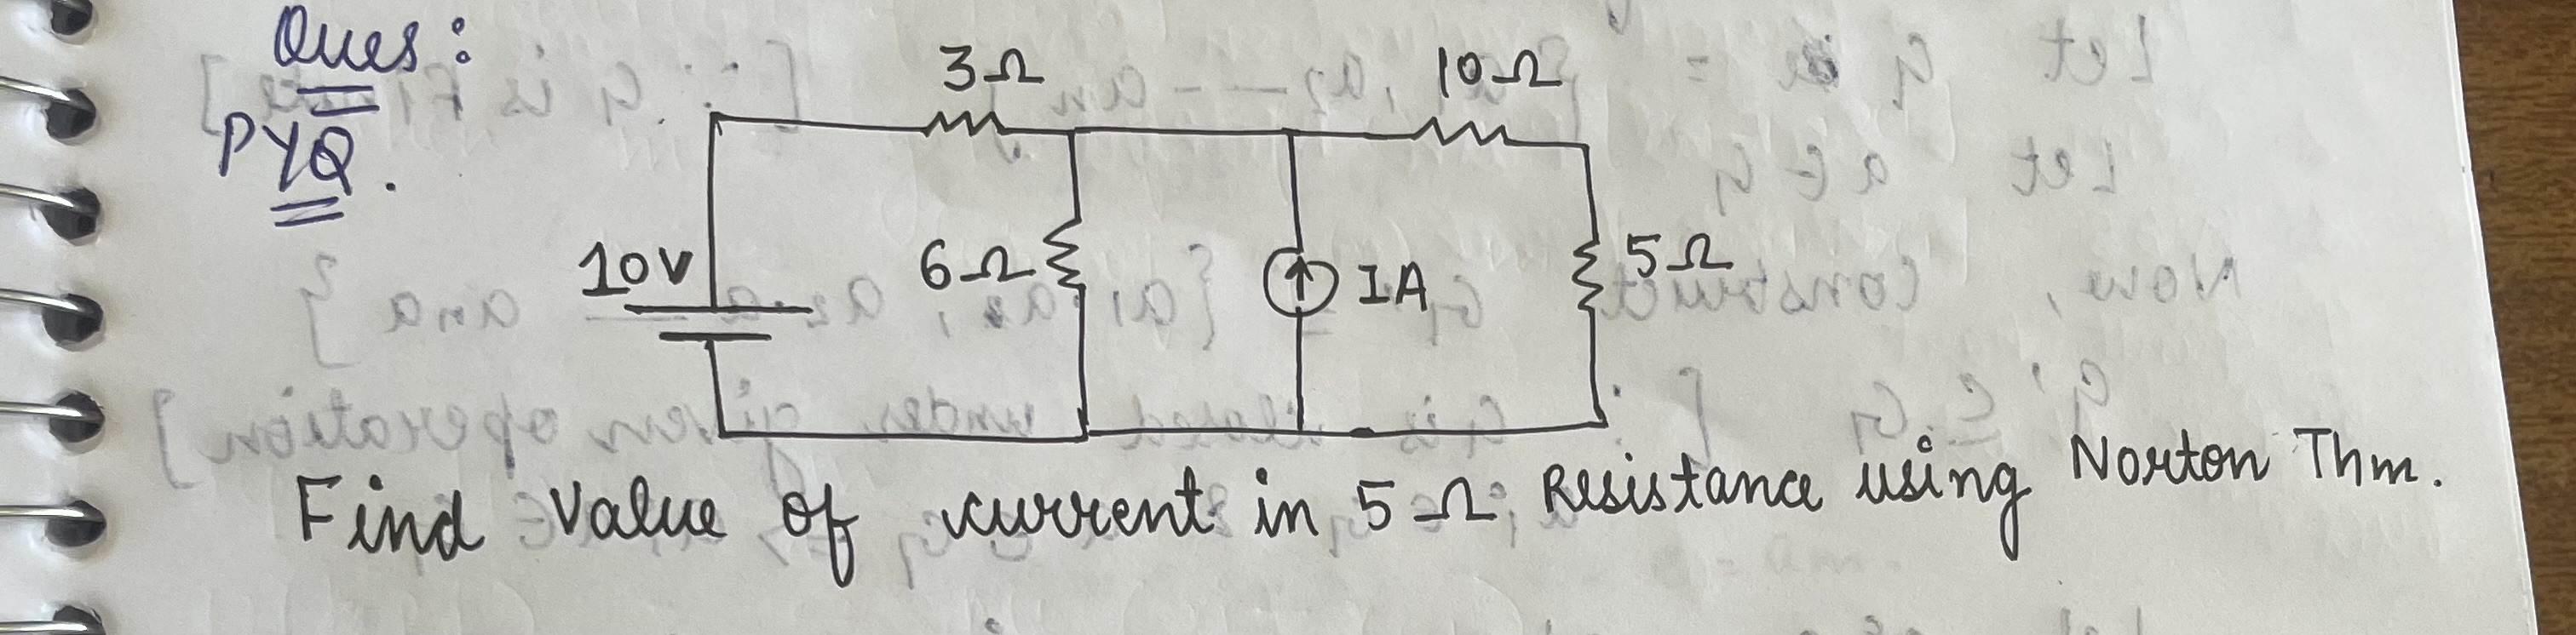 Ques:
PYQ.
3Ω 10Ω
10V 6Ω 1A 5Ω
Find Value of current in 5Ω Resistance using Norton Thm.